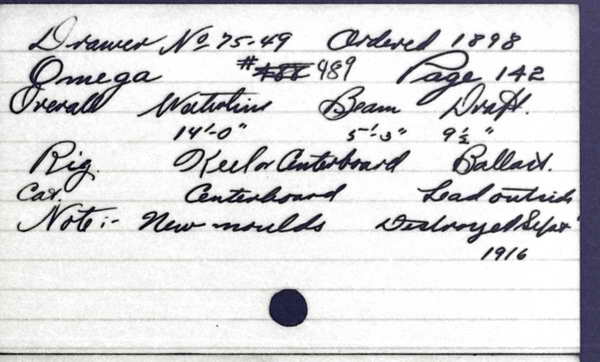 Drawer No 75-49 Ordered 1898
Omega # 488 489 Page 142
Overall Waterline Beam Draft.
14'-0" 5'-0" 9½"
Rig. Keel or Centerboard Ballast.
Cat. Centerboard Lead outside
Note:- New moulds Destroyed Sept
1916